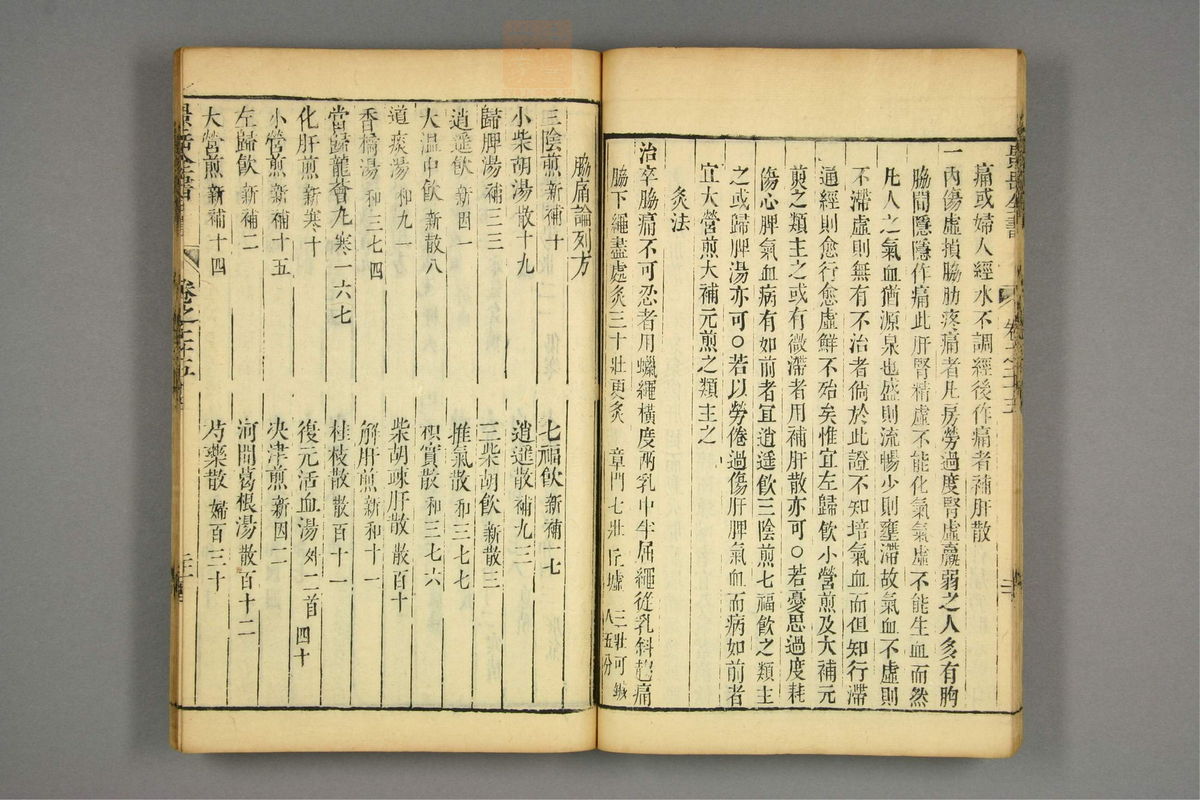 痛或婦人經水不調經後作痛者補肝散
一內傷虛損脇肋疼痛者凢房勞過度腎虛羸弱之人多有胸
脇間隱隱作痛此肝腎精虛不能化氣氣虛不能生血而然
凢人之氣血猶源泉也盛則流暢少則壅滯故氣血不虛則
不滯虛則無有不治者倘於此證不知培氣血而但知行滯
通經則愈行愈虛鮮不殆矣惟宜左歸飲小營煎及大補元
煎之類主之或有微滯者用補肝散亦可○若憂思過度耗
傷心脾氣血病有如前者宜逍遥飲三陰煎七福飲之類主
之或歸脾湯亦可○若以勞倦過傷肝脾氣血而病如前者
宜大營煎大補元煎之類主之
灸法
治卒脇痛不可忍者用蠟繩橫度兩乳中半屈繩從乳斜趂痛
脇下繩盡處灸三十壯更灸 章門七壯 丘墟 三壯可鍼入五分
脇痛論列方
三陰煎新補十一 七福飲新補一七
小柴胡湯散十九 逍遥散補九三
歸脾湯補三三 三柴胡飲新散三
逍遥飲新因一 推氣散和三七七
大温中飲新散八 枳實散和三七六
道痰湯和九一 柴胡疎肝散散百十
香橘湯和三七四 解肝煎新和十一
當歸龍薈丸寒一六七 桂枝散散百十一
化肝煎新寒十 復元活血湯外二百四十
小營煎新補十五 决津煎新因二
左歸飲新補二 河間葛根湯散百十二
大營煎新補十四 芍藥散婦百三十
景岳全書
卷之二十五